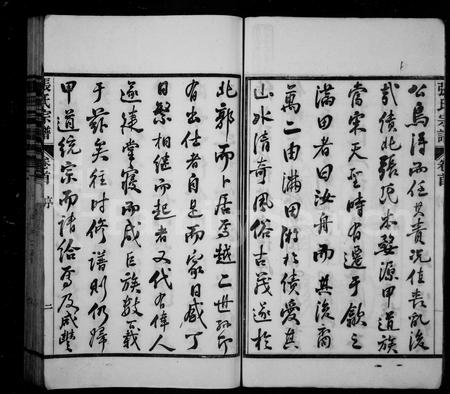 公烏得而任其責況值喪亂後
哉績北張氏本婺源甲道族
當宋天聖時有遷于歙之
滿田者曰汝舟而其後裔
萬二由滿田游於績愛其
山水清奇風俗古茂遂於
北郭而卜居焉越二世孫即
有出仕者自是而家日盛丁
日繁相繼而起者又代有偉人
遂建堂寢而咸臣族數百載
于茲矣往時修譜則仍歸
甲道統宗而請給焉及咸豐
張氏宗譜
卷首
張氏宗譜
卷首
序
二